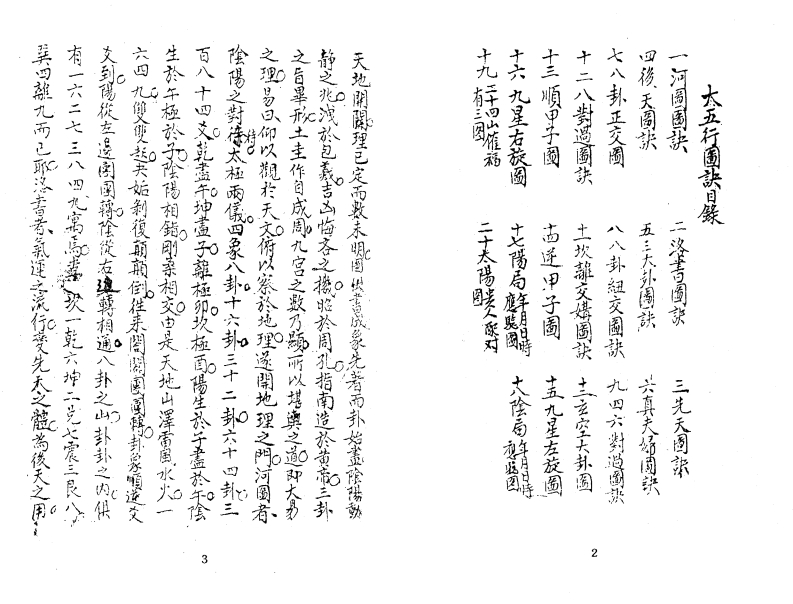 太五行圖訣目錄
一河圖圖訣 二洛書圖訣 三先天圖訣
四後天圖訣 五三大卦圖訣 六真夫婦圖訣
七八卦正交圖 八八卦紐交圖 九四六對過圖訣
十二八對過圖訣 十一坎離交媾圖訣 十二玄空大卦圖
十三順甲子圖 十四逆甲子圖 十五九星左旋圖
十六九星右旋圖 十七陽局年月日時應驗圖 十八陰局年月日時應驗圖
十九二十四山催福有三圖 二十太陽貴人 對圖
2
天地開闢理已定而數未明圖 書成象先者而卦始盡陰陽動
靜之兆洩於包羲吉凶悔吝之機昭於周孔指南造於黃帝三卦
之旨畢形土圭作自成周九宮之數乃顯所以堪輿之道即大易
之理易曰仰以觀於天文俯以察於地理遂開地理之門河圖者
陰陽之對待理太極兩儀四象八卦十六卦三十二卦六十四卦三
百八十四爻乾盡午坤盡子離極卯坎極酉陽生於子盡於午陰
生於午極於子陰陽相錯剛柔相交由是天地山澤雷風水火一
六四九雙雙起夬姤剝復顛顛倒往來闔闢團團轉卦象順逆爻
爻到陽從左邊團團轉陰從右邊轉相通八卦之山卦卦之內供
有一六二七三八四九寓焉 坎一乾六坤二兌七震三艮八
巽四離九而已耶洛書者氣運之流行變先天之體為後天之用
3